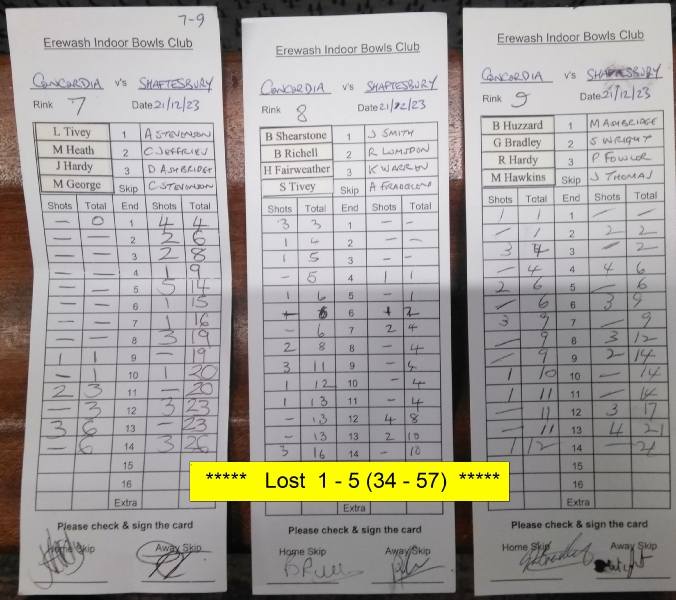 7-9
Erewash Indoor Bowls Club
CONCORDIA v's SHAFTESBURY
Rink 7 Date 21/12/23
L Tivey 1 A STEVENSON
M Heath 2 C JEFFRIES
J Hardy 3 D ASHBRIDGE
M George Skip C STEVENSON
Shots Total End Shots Total
— 0 1 4 4
— — 2 2 6
— — 3 2 8
— — 4 1 9
— — 5 5 14
— — 6 1 15
— — 7 1 16
— — 8 3 19
1 1 9 — 19
— 1 10 1 20
2 3 11 — 20
— 3 12 3 23
3 6 13 — 23
— 6 14 3 26
15
16
Extra
Please check & sign the card
Home Skip Away Skip
Erewash Indoor Bowls Club
CONCORDIA v's SHAFTESBURY
Rink 8 Date 21/12/23
B Shearstone 1 J SMITH
B Richell 2 R LUMSDON
H Fairweather 3 K WARREN
S Tivey Skip A
Shots Total End Shots Total
3 3 1 — —
1 4 2 — —
1 5 3 — —
— 5 4 1 1
1 6 5 — 1
6 6 1 2
— 6 7 2 4
2 8 8 — 4
3 11 9 — 4
1 12 10 — 4
1 13 11 — 4
— 13 12 4 8
— 13 13 2 10
3 16 14 — 10
Please check & sign the card
Home Skip Away Skip
Erewash Indoor Bowls Club
CONCORDIA v's SHAFTESBURY
Rink 9 Date 21/12/23
B Huzzard 1 M ASHBRIDGE
G Bradley 2 S WRIGHT
R Hardy 3 P FOWLER
M Hawkins Skip J THOMAS
Shots Total End Shots Total
1 1 1 — —
— 1 2 2 2
3 4 3 — 2
— 4 4 4 6
2 6 5 — 6
— 6 6 3 9
3 9 7 — 9
— 9 8 3 12
— 9 9 2 14
1 10 10 — 14
1 11 11 — 14
— 11 12 3 17
— 11 13 4 21
1 12 14 — 21
15
16
Extra
Please check & sign the card
Home Skip Away Skip
***** Lost 1 - 5 (34 - 57) *****